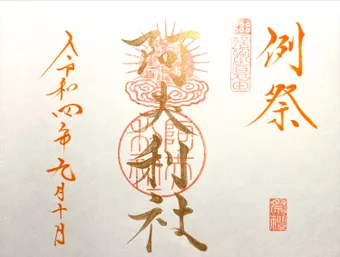 例祭
阿夫利社
令和四年九月十日